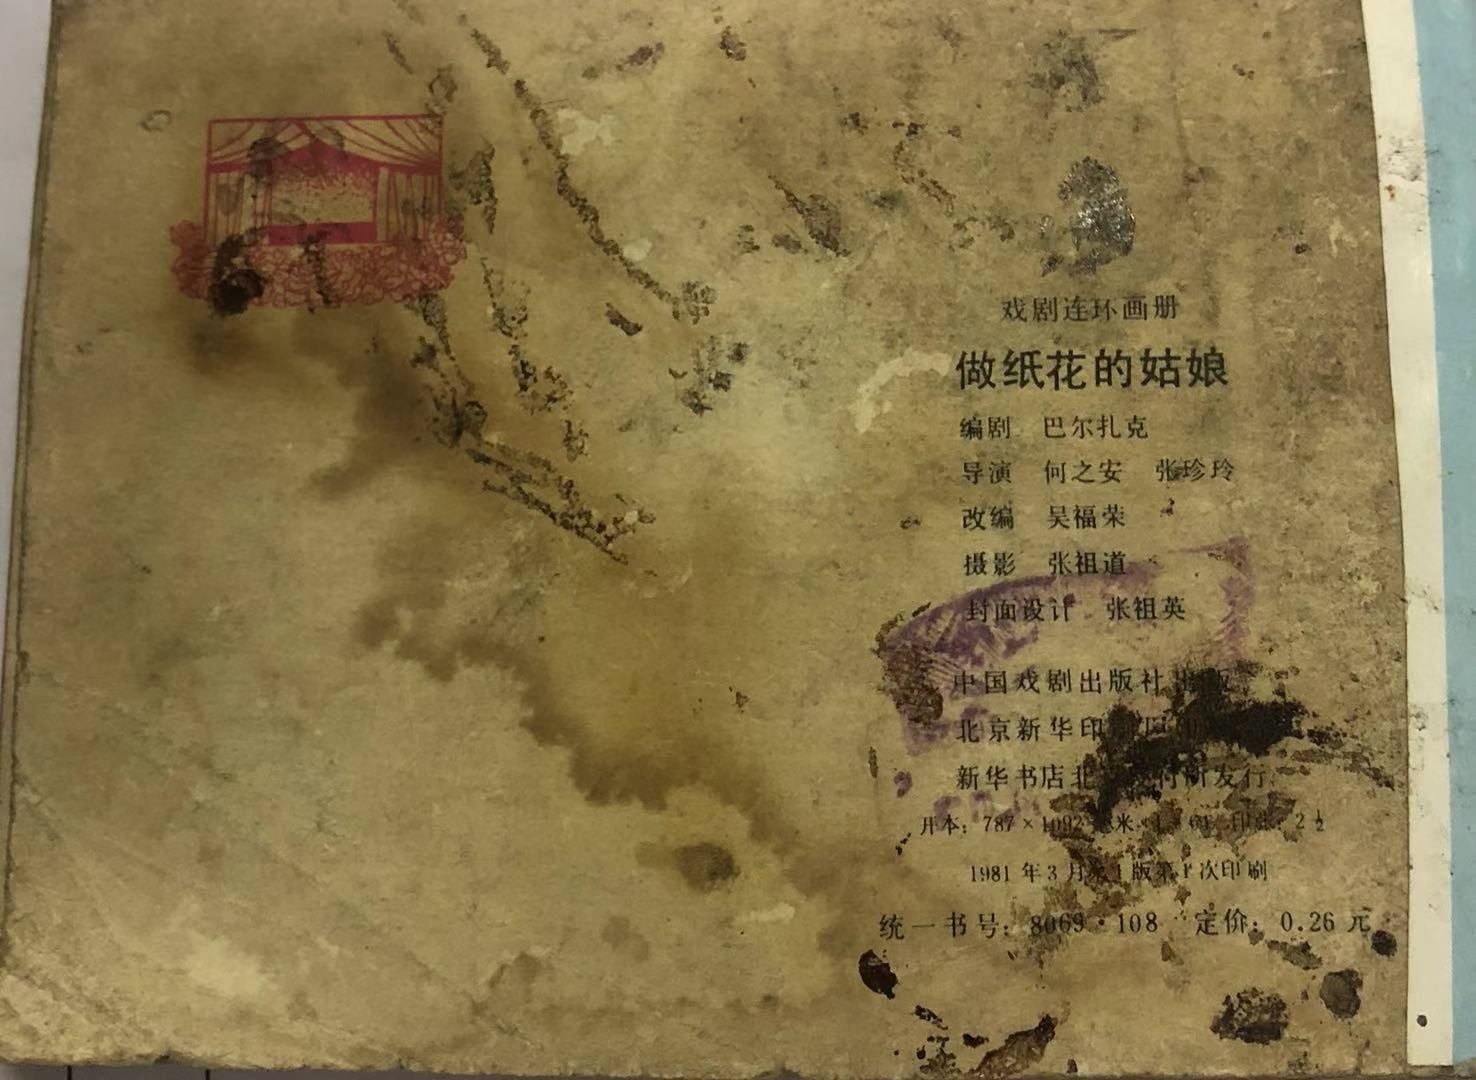 戏剧连环画册
做纸花的姑娘
编剧 巴尔扎克
导演 何之安 张珍玲
改编 吴福荣
摄影 张祖道
封面设计 张祖英
中国戏剧出版社出版
北京新华印
新华书店北 发行
开本: 787×1092 毫米 印 2½
1981年3月第1版第1次印刷
统一书号: 8069·108 定价: 0.26 元